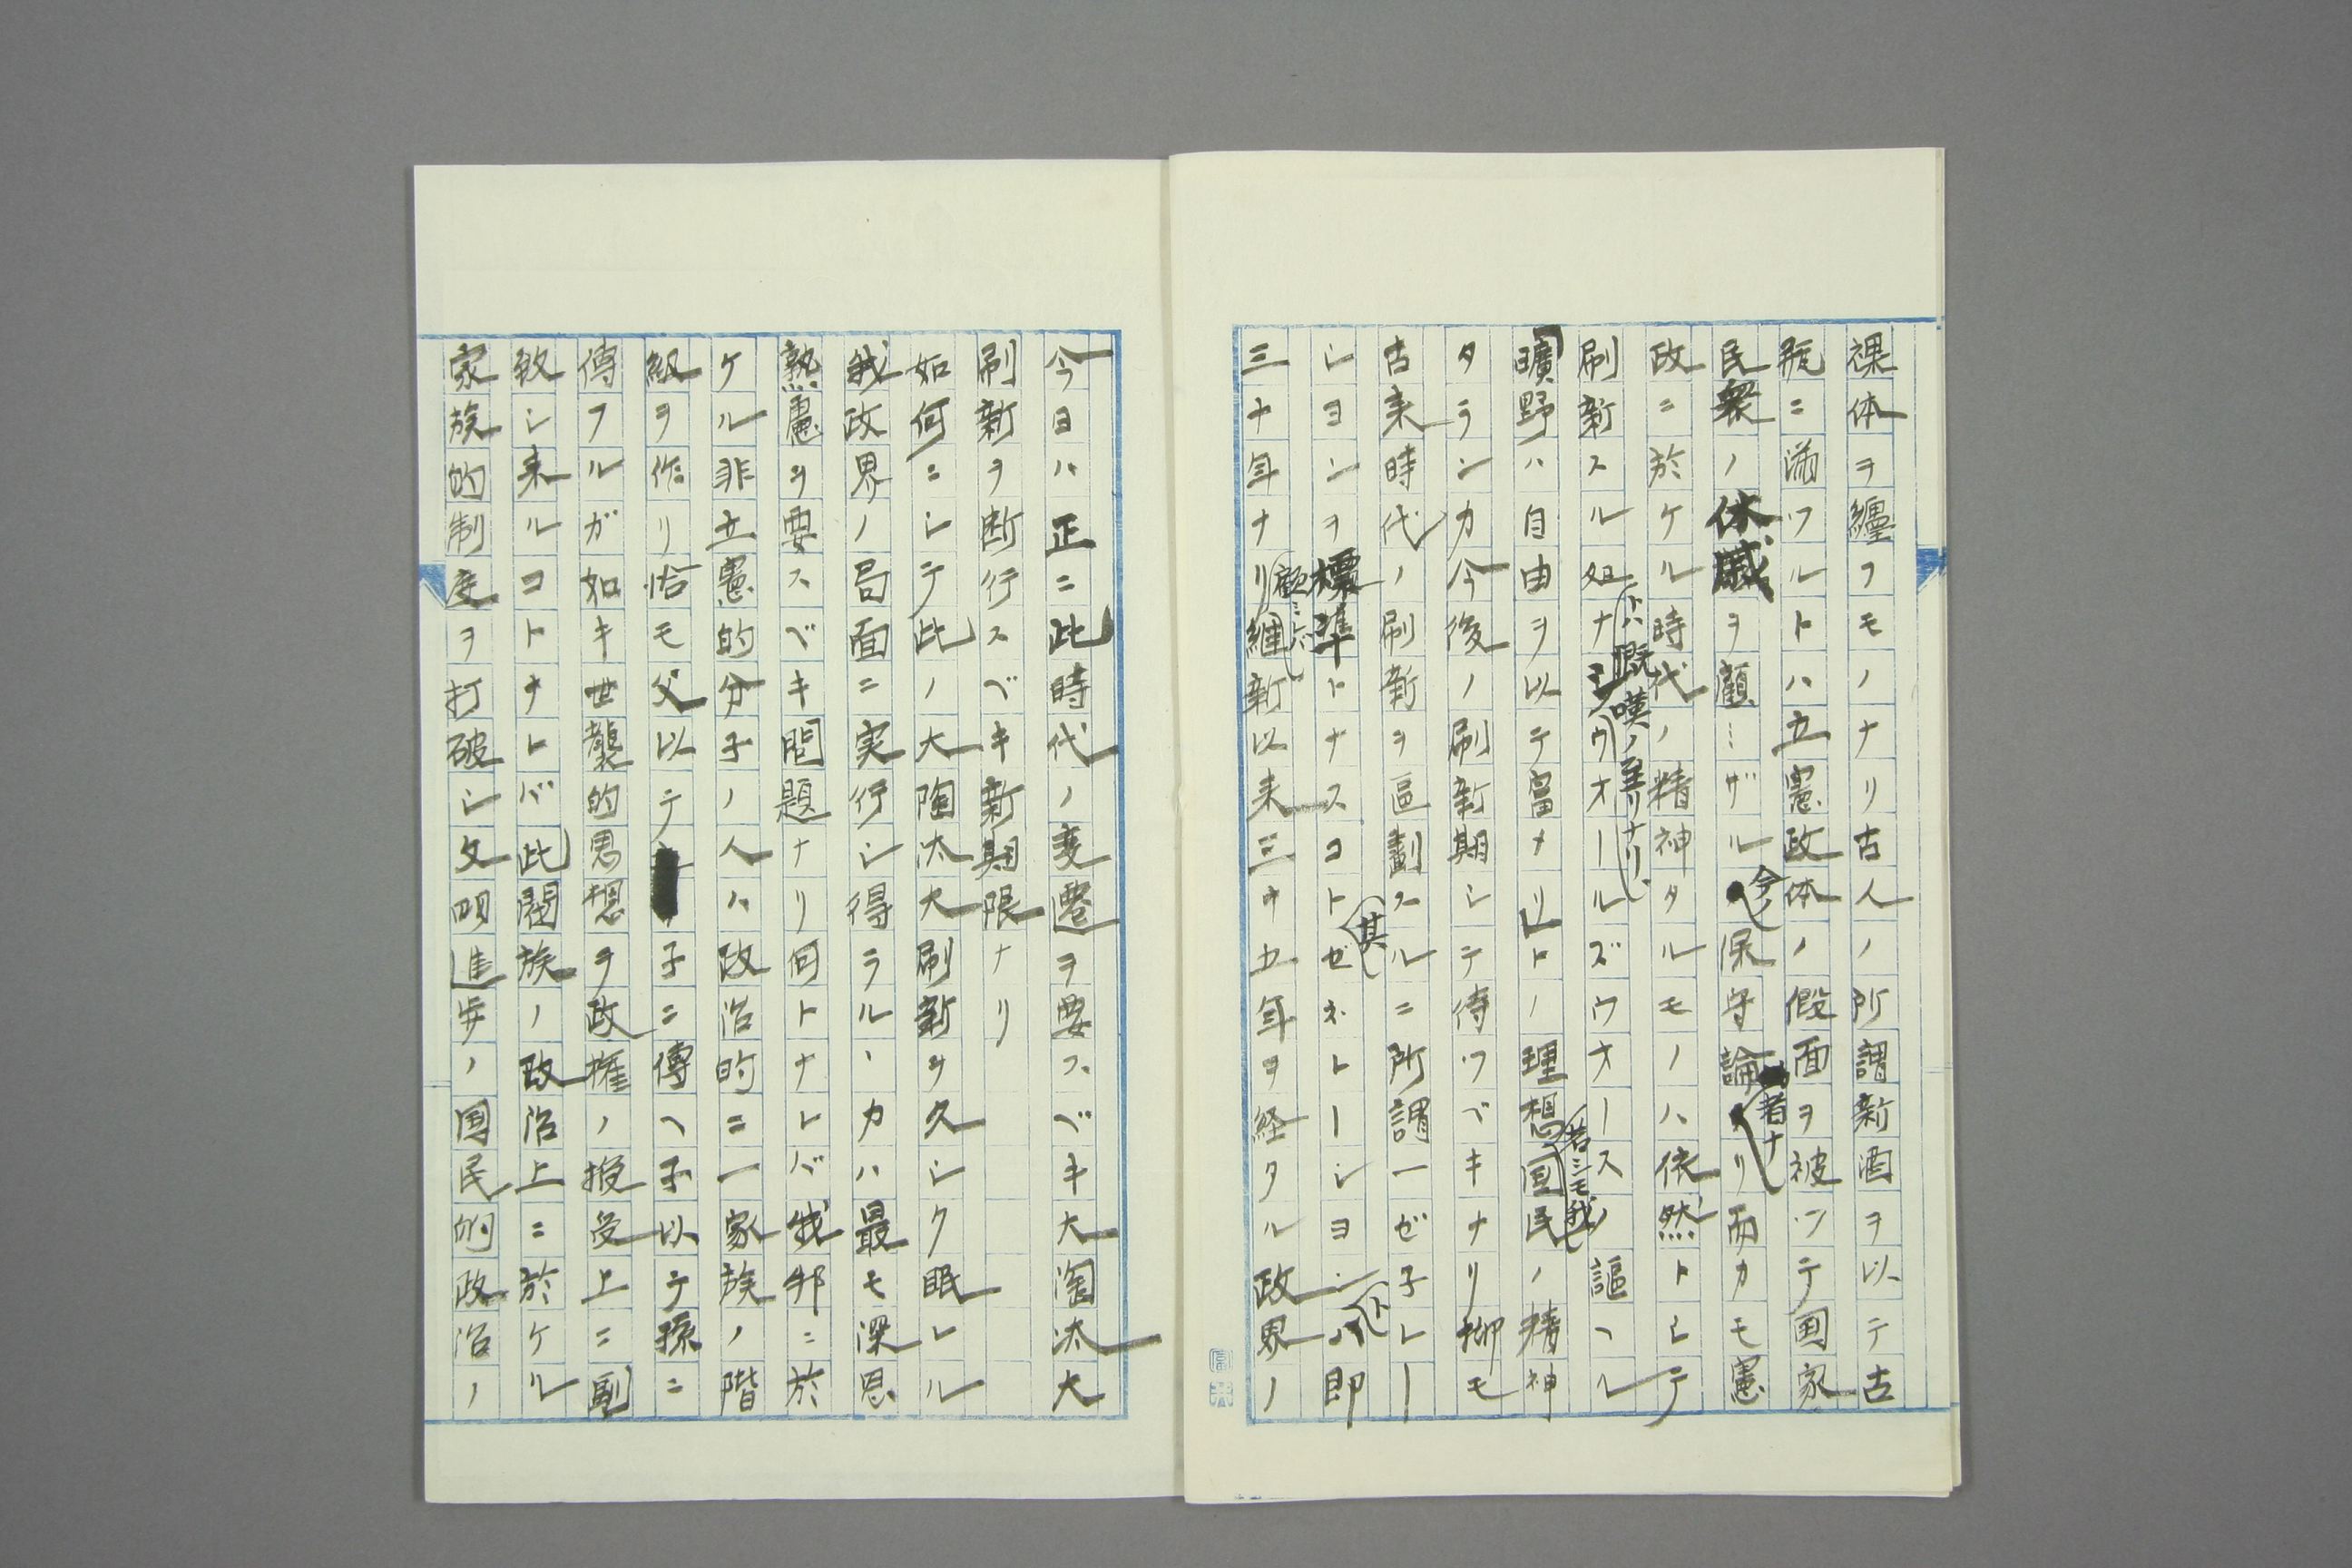 裸体ヲ纏フモノナリ古人ノ所謂新酒ヲ以テ古
瓶ニ満ツルトハ立憲政体ノ假面ヲ被ツテ国家
民衆ノ休戚ヲ顧ミザル今ノ保守論者ナリ而カモ憲
政ニ於ケル時代ノ精神タルモノハ依然トシテ
刷新スル如ナシトハ慨嘆ノ至リナリウオールズウオース謳ヘル
曠野ハ自由ヲ以テ富メリトノ理想若シモ我国民ノ精神
タランカ今後ノ刷新期シテ待ツベキナリ抑モ
古来時代ノ刷新ヲ區劃スルニ所謂一ゼ子レー
シヨンヲ標準トナスコト其ゼネレーシヨントハ即
三十年ナリ顧ミレバ維新以来三十五年ヲ経タル政界ノ
今日ハ正ニ此時代ノ変遷ヲ要スベキ大淘汰大
刷新ヲ断行スベキ新期限ナリ
如何ニシテ此ノ大陶汰大刷新ヲ久シク眠レル
我政界ノ局面ニ実行シ得ラルヽカハ最モ深思
熟慮ヲ要スベキ問題ナリ何トナレバ我邦ニ於
ケル非立憲的分子ノ人ハ政治的ニ一家族ノ階
級ヲ作リ恰モ父以テ子ニ傳ヘ子以テ孫ニ
傳フルガ如キ世襲的思想ヲ政権ノ授受上ニ馴
致シ来ルコトナレバ此閥族ノ政治上ニ於ケル
家族的制度ヲ打破シ文明進歩ノ国民的政治ノ